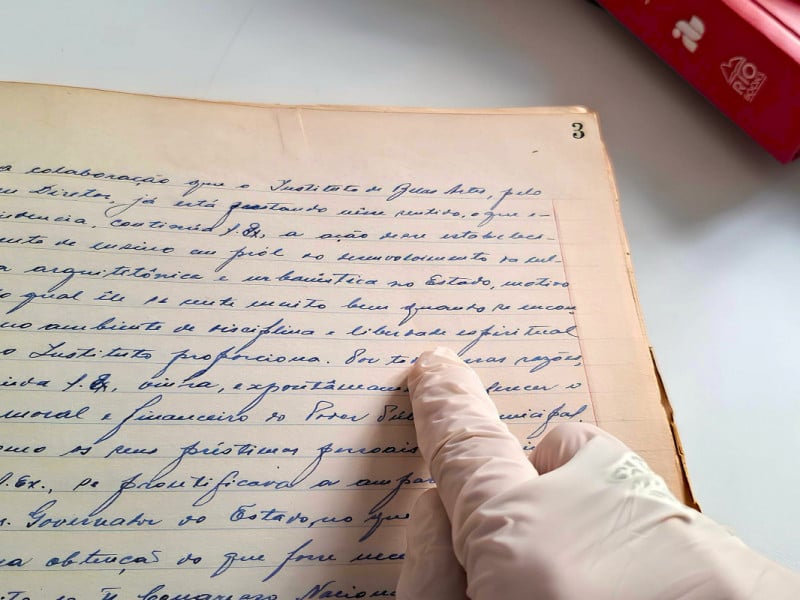 3
a colaboração que o Instituto de Belas Artes, pelo
Diretor, já está prestando nesse sentido, e que e-
videncia, continúa S. Ex. a ação desse estabeleci-
mento de ensino em pról do desenvolvimento da cul-
a arquitetônica e urbanística no Estado, motivo
qual êle se sente muito bem quando se encon
no ambiente de disciplina e liberdade espiritual
o Instituto proporciona. Por razões,
S. Ex. viéra, expontâneamen o
moral e financeiro do Poder municipal,
omo os seus préstimos pessoais
S. Ex., se prontificava a ampa
Governador do Estado, no que
a obtenção do que fosse nece
II Congresso Nacional
RIO
BOOKS